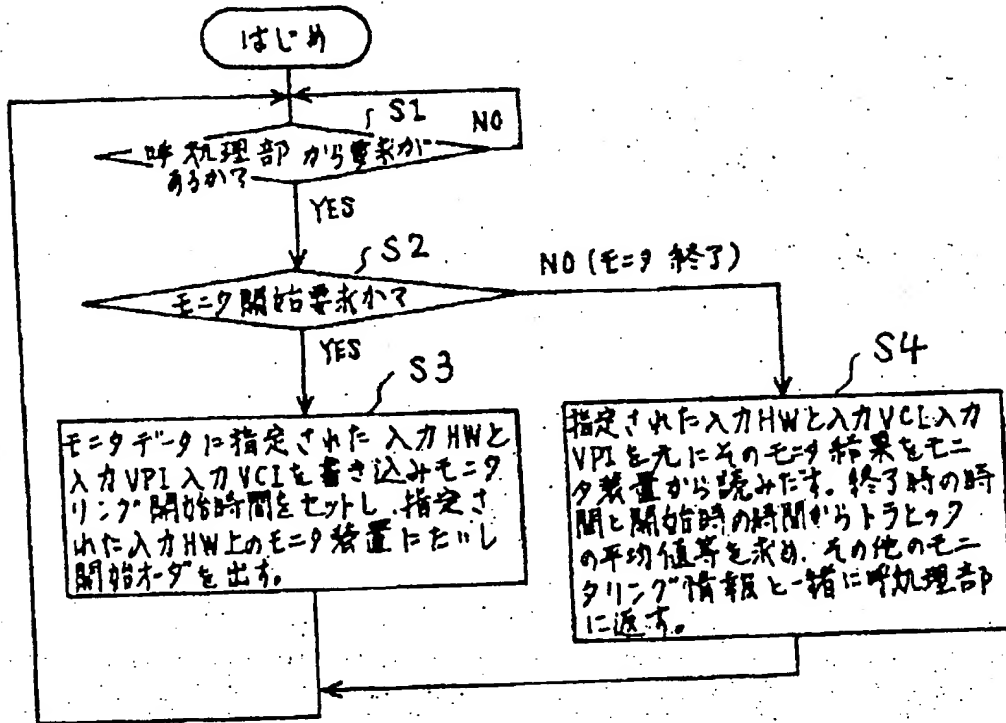 はじめ
S1
NO
呼処理部から要求が
あるか?
YES
S2
NO (モニタ終了)
モニタ開始要求か?
YES
S3
S4
モニタデータに指定された入力HWと
入力VPI入力VCIを書き込みモニタ
リング開始時間をセットし、指定さ
れた入力HW上のモニタ装置にたいし
開始オーダを出す。
指定された入力HWと入力VCI入力
VPIを元にそのモニタ結果をモニ
タ装置から読みだす。終了時の時
間と開始時の時間からトラヒック
の平均値等を求め、その他のモニ
タリング情報と一緒に呼処理部
に返す。